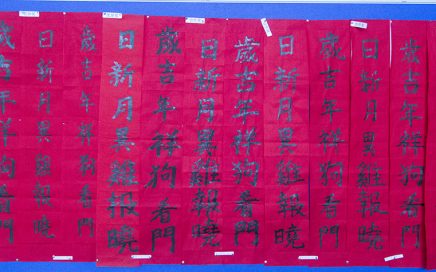 歲吉年祥狗看門
日新月異雞報曉
歲吉年祥狗看門
日新月異雞報曉
歲吉年祥狗看門
日新月異雞報曉
歲吉年祥狗看門
日新月異雞報曉
歲吉年祥狗看門
日新月異雞報曉
歲吉年祥狗看門